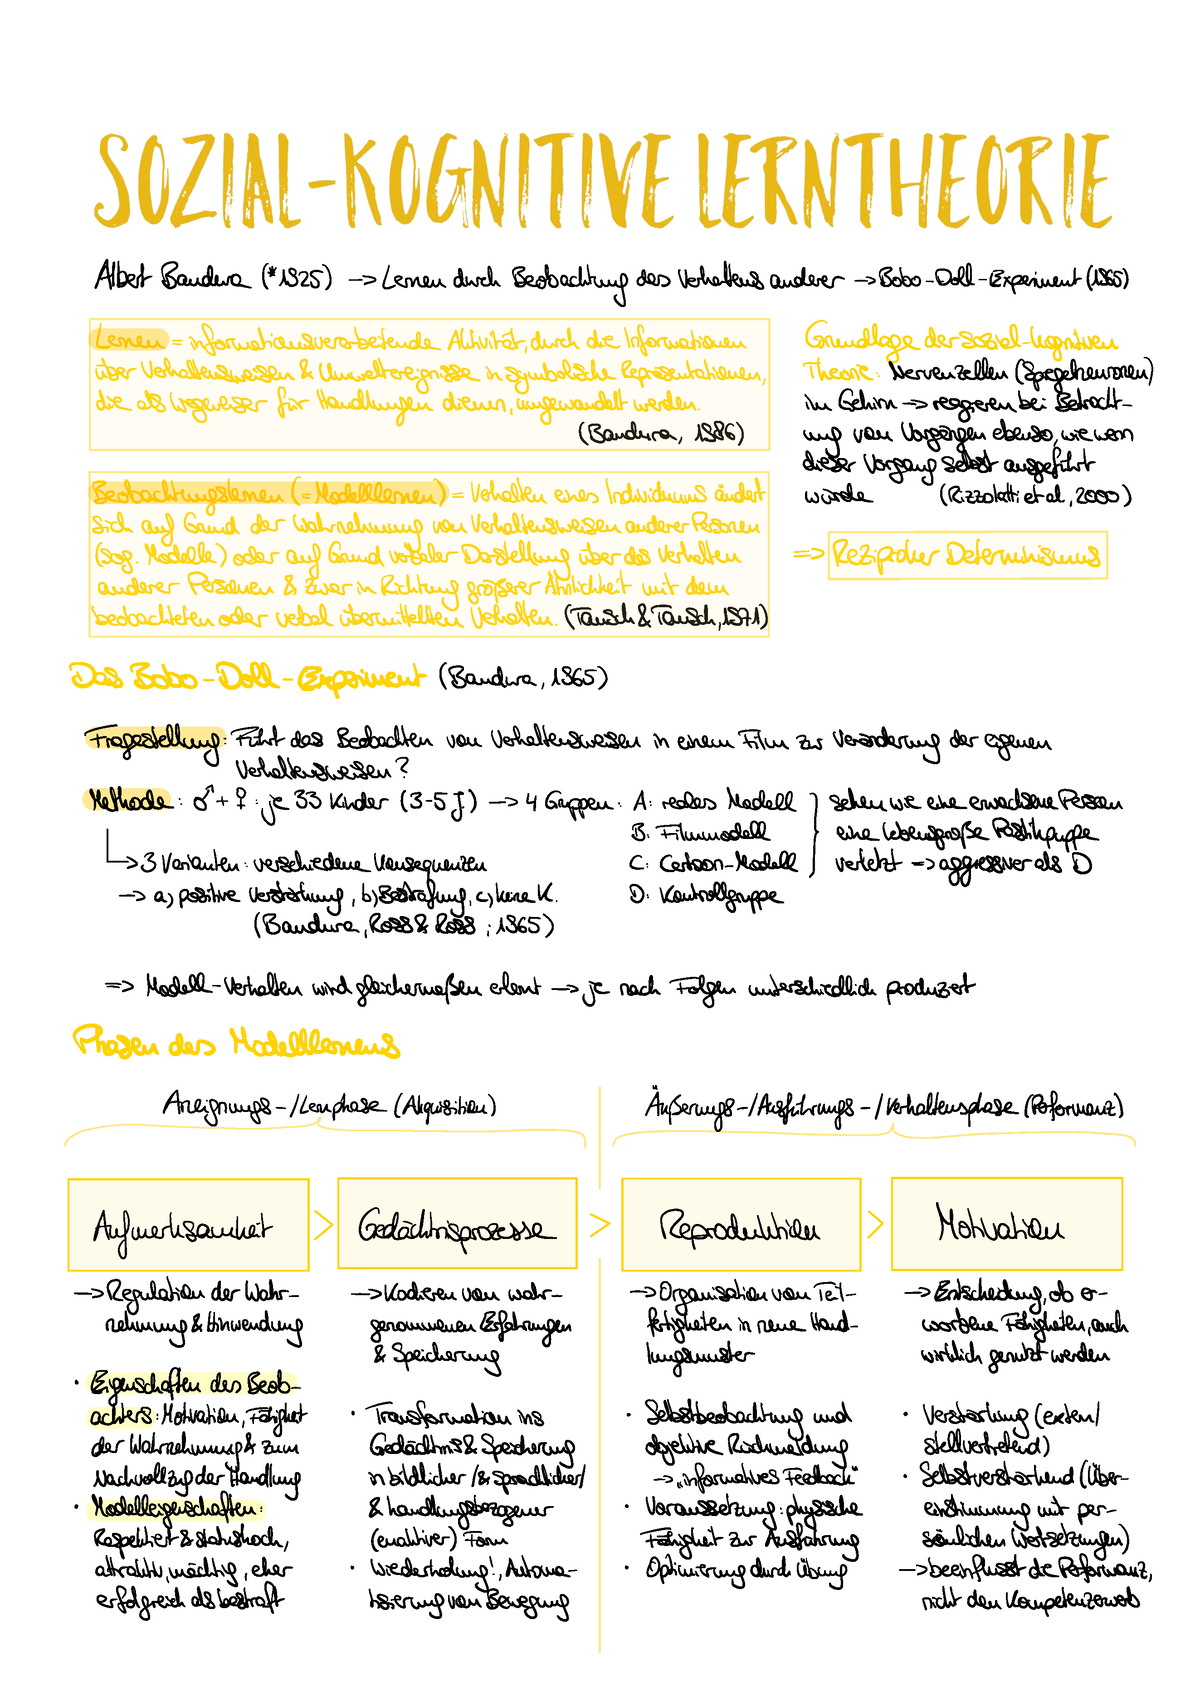 SOZIAL-KOGNITIVE LERNTHEORIE
Albert Bandura (*1925) -> Lernen durch Beobachtung des Verhaltens anderer -> Bobo-Doll-Experiment (1965)
Lernen = informationsverarbeitende Aktivität, durch die Informationen
über Verhaltensweisen & Umweltereignisse in symbolische Repräsentationen,
die als Wegweiser für Handlungen dienen, umgewandelt werden.
(Bandura, 1986)
Grundlage der sozial-kognitiven
Theorie: Nervenzellen (Spiegelneuronen)
im Gehirn -> reagieren bei Betracht-
ung von Vorgängen ebenso, wie wenn
dieser Vorgang selbst ausgeführt
würde (Rizzolatti et al., 2000)
=> Reziproker Determinismus
Beobachtungslernen (= Modelllernen) = Verhalten eines Individuums ändert
sich auf Grund der Wahrnehmung von Verhaltensweisen anderer Personen
(sog. Modelle) oder auf Grund verbaler Darstellung über das Verhalten
anderer Personen & zwar in Richtung größerer Ähnlichkeit mit dem
beobachteten oder verbal übermittelten Verhalten. (Tausch & Tausch, 1971)
Das Bobo-Doll-Experiment (Bandura, 1965)
Fragestellung: Führt das Beobachten von Verhaltensweisen in einem Film zur Veränderung der eigenen
Verhaltensweisen?
Methode: ♂ + ♀: je 33 Kinder (3-5 J) -> 4 Gruppen: A: reales Modell } sehen wie eine erwachsene Person
B: Filmmodell eine lebensgroße Plastikpuppe
↳ 3 Varianten: verschiedene Konsequenzen C: Cartoon-Modell verletzt -> aggressiver als D
-> a) positive Verstärkung, b) Bestrafung, c) keine K. D: Kontrollgruppe
(Bandura, Ross & Ross; 1965)
=> Modell-Verhalten wird gleichermaßen erlernt -> je nach Folgen unterschiedlich produziert
Phasen des Modelllernens
Aneignungs-/Lernphase (Akquisition)
Äußerungs-/Ausführungs-/Verhaltensphase (Performanz)
Aufmerksamkeit > Gedächtnisprozesse > Reproduktion > Motivation
-> Regulation der Wahr-
nehmung & Hinwendung
· Eigenschaften des Beob-
achters: Motivation, Fähigkeit
der Wahrnehmung & zum
Nachvollzug der Handlung
· Modelleigenschaften:
Respektiert & statushoch,
attraktiv, mächtig, eher
erfolgreich als bestraft
-> Kodieren von wahr-
genommenen Erfahrungen
& Speicherung
· Transformation ins
Gedächtnis & Speicherung
in bildlicher /& sprachlicher/
& handlungsbezogener
(enaktiver) Form
· Wiederholung!, Automa-
tisierung von Bewegung
-> Organisation von Teil-
fertigkeiten in neue Hand-
lungsmuster
· Selbstbeobachtung und
objektive Rückmeldung
-> „informatives Feedback"
· Voraussetzung: physische
Fähigkeit zur Ausführung
· Optimierung durch Übung
-> Entscheidung, ob er-
worbene Fähigkeiten, auch
wirklich genutzt werden
· Verstärkung (extern/
stellvertretend)
· Selbstverstärkend (Über-
einstimmung mit per-
sönlichen Wertsetzungen)
-> beeinflusst die Performanz,
nicht den Kompetenzerwerb